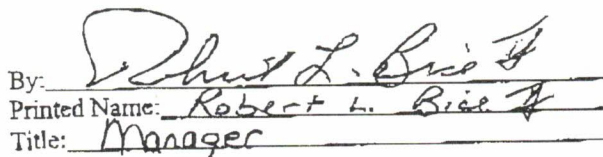 By: Robert L. Bice
Printed Name: Robert L. Bice
Title: Manager